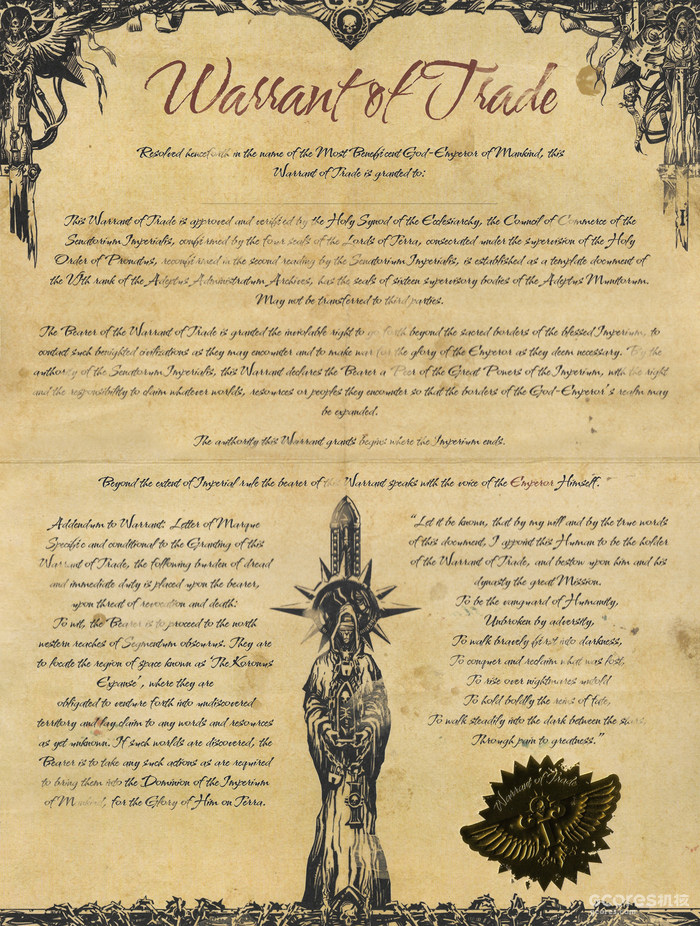 Warrant of Trade
Resolved henceforth in the name of the Most Beneficent God-Emperor of Mankind, this
Warrant of Trade is granted to:
This Warrant of Trade is approved and verified by the Holy Synod of the Ecclesiarchy, the Council of Commerce of the
Senatorium Imperialis, confirmed by the four seals of the Lords of Terra, consecrated under the supervision of the Holy
Order of Pronatus, reconfirmed in the second reading by the Senatorium Imperialis, is established as a template document of
the VIth rank of the Adeptus Administratum Archives, has the seals of sixteen supervisory bodies of the Adeptus Munitorum.
May not be transferred to third parties.
The Bearer of the Warrant of Trade is granted the inviolable right to go forth beyond the sacred borders of the blessed Imperium, to
contact such benighted civilizations as they may encounter and to make war for the glory of the Emperor as they deem necessary. By the
authority of the Senatorum Imperialis, this Warrant declares the Bearer a Peer of the Great Powers of the Imperium, with the right
and the responsibility to claim whatever worlds, resources or peoples they encounter so that the borders of the God-Emperor's realm may
be expanded.
The authority this Warrant grants begins where the Imperium ends.
Beyond the extent of Imperial rule the bearer of this Warrant speaks with the voice of the Emperor Himself.
Addendum to Warrant: Letter of Marque
Specific and conditional to the Granting of this
Warrant of Trade, the following burden of dread
and immediate duty is placed upon the bearer,
upon threat of revocation and death:
To wit, the Bearer is to proceed to the north
western reaches of Segmentum obscurus. They are
to locate the region of space known as 'The Koronus
Expanse', where they are
obligated to venture forth into undiscovered
territory and lay claim to any words and resources
as yet unknown. If such worlds are discovered, the
Bearer is to take any such actions as are required
to bring them into the Dominion of the Imperium
of Mankind, for the Glory of Him on Terra.
"Let it be known, that by my will and by the true words
of this document, I appoint this Human to be the holder
of the Warrant of Trade, and bestow upon him and his
dynasty the great Mission.
To be the vanguard of Humanity,
Unbroken by adversity,
To walk bravely first into darkness,
To conquer and reclaim what was lost,
To rise over nightmares untold
To hold boldly the reins of fate,
To walk steadily into the dark between the stars,
Through pain to greatness."
Warrant of Trade
gcores机核
gcores.com